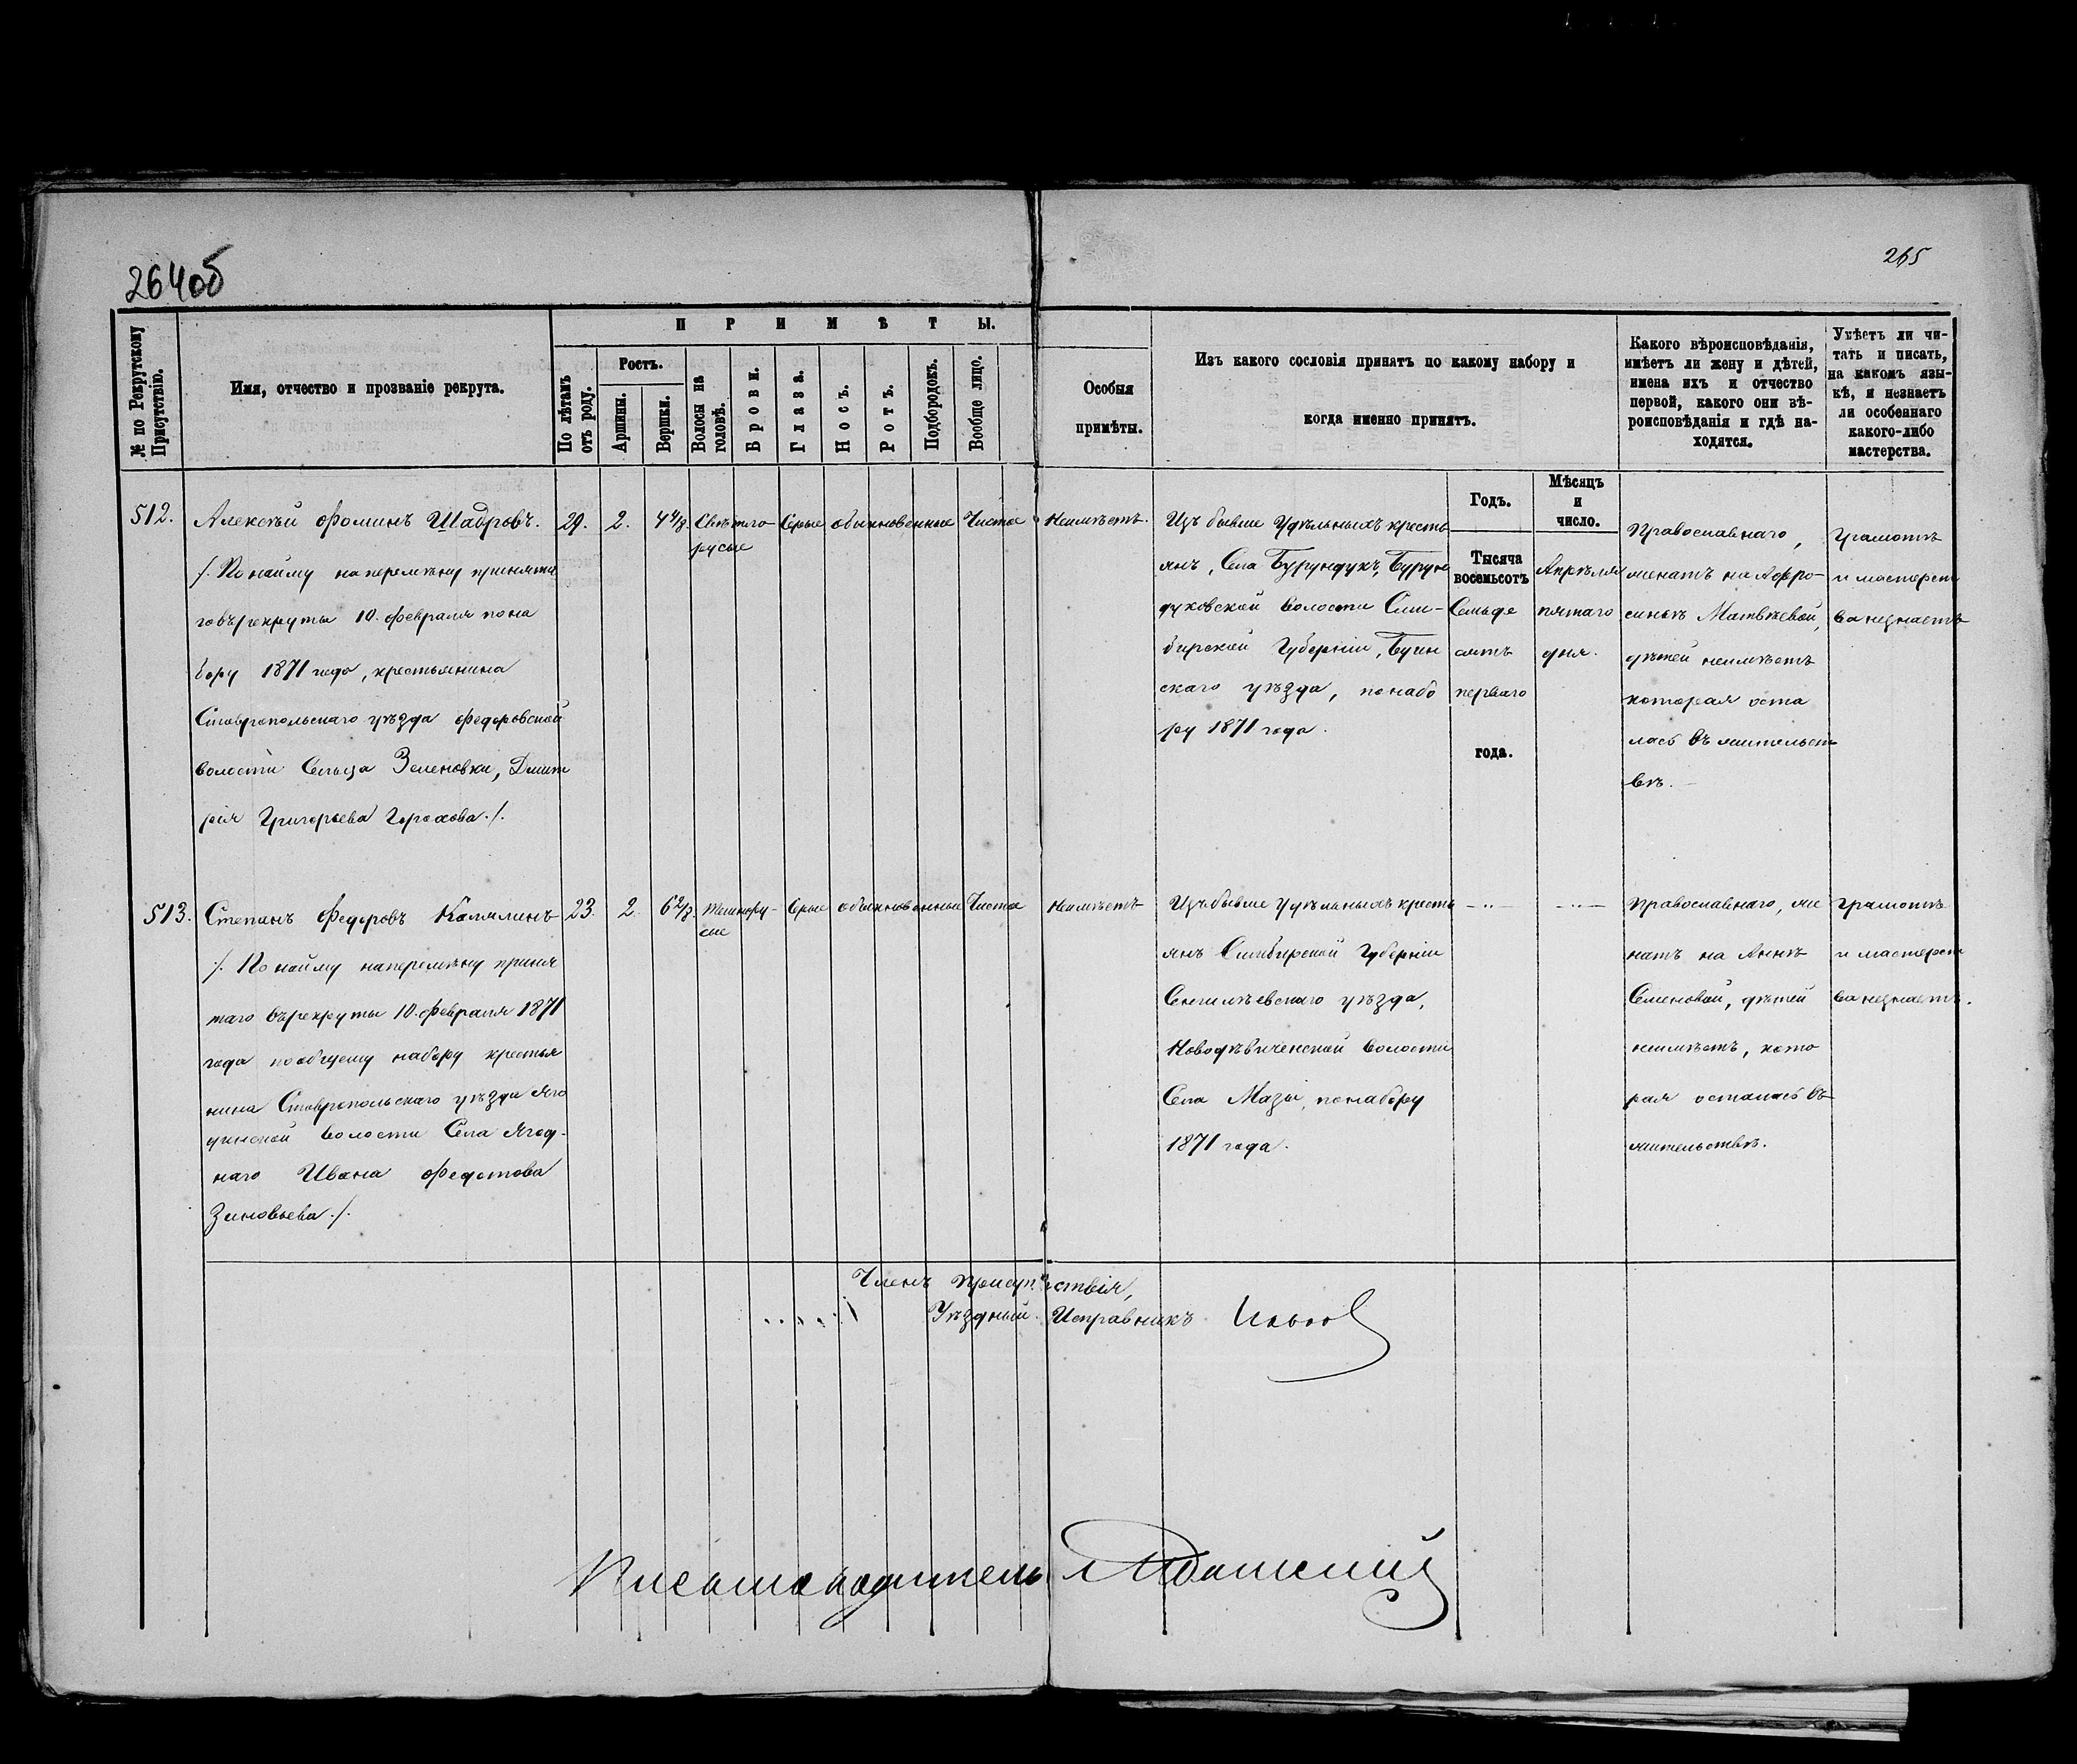 264об
265
№ по Рекрутскому Присутствію.
Имя, отчество и прозваніе рекрута.
ПРИМѢТЫ.
По лѣтамъ отъ роду.
Ростъ.
Аршины.
Вершки.
Волосы на головѣ.
Брови.
Глаза.
Носъ.
Ротъ.
Подбородокъ.
Вообще лицо.
Особыя
примѣты.
Изъ какого сословія принятъ по какому набору и
когда именно принятъ.
Какого вѣроисповѣданія,
имѣетъ ли жену и дѣтей,
имена ихъ и отчество
первой, какого они вѣ-
роисповѣданія и гдѣ на-
ходятся.
Умѣетъ ли чи-
тать и писать,
на какомъ язы-
кѣ, и незнаетъ
ли особеннаго
какого-либо
мастерства.
512.
Алексѣй Фоминъ Шабровъ.
/. По найму на перемѣну принята
го въ рекруты 10. февраля по на
бору 1871 года, крестьянина
Ставропольскаго уѣзда Федоровской
волости Сельца Зеленовки, Дмит
рія Григорьева Горохова./.
29.
2.
4 4/8.
Свѣтло-
русые
Сѣрые
обыкновенные
Чистое
Неимѣетъ.
Изъ бывше Удѣльныхъ кресть
янъ, Села Бурундукъ, Бурун
дуковской волости Сим-
бирской Губерніи, Буин
скаго уѣзда, по набо
ру 1871 года.
Годъ.
Тысяча
восемьсотъ
Семьде
сятъ
перваго
года.
Мѣсяцъ
и
число.
Апрѣля
пятаго
дня.
Православнаго,
женатъ на Афро-
синьѣ Матвѣевой,
дѣтей неимѣетъ
которая оста
лась въ жительст
вѣ.-
Грамотѣ
и мастерст
ва незнаетъ
513.
Степанъ Федоровъ Калялинъ
/. По найму на перемѣну приня
таго въ рекруты 10. февраля 1871
года по общему набору крестья
нина Ставропольскаго уѣзда Яго
динской волости Села Ягод-
наго Ивана Федотова
Зиновьева./.
23.
2.
6 2/8.
Темнору-
сые
Сѣрые
обыкновенные
Чистое
Неимѣетъ
Изъ бывше Удѣльныхъ кресть
янъ Симбирской Губерніи
Сенгилѣевскаго уѣзда,
Новодѣвиченской волости
Села Мазы, по набору
1871 года.
—..—
—..—
Православнаго, же
натъ на Аннѣ
Семеновой, дѣтей
неимѣетъ, кото
рая осталась въ
жительствѣ.
Грамотѣ
и мастерст
ва незнаетъ.
Членъ Присутствія,
Уѣздный Исправникъ
Письмоводитель